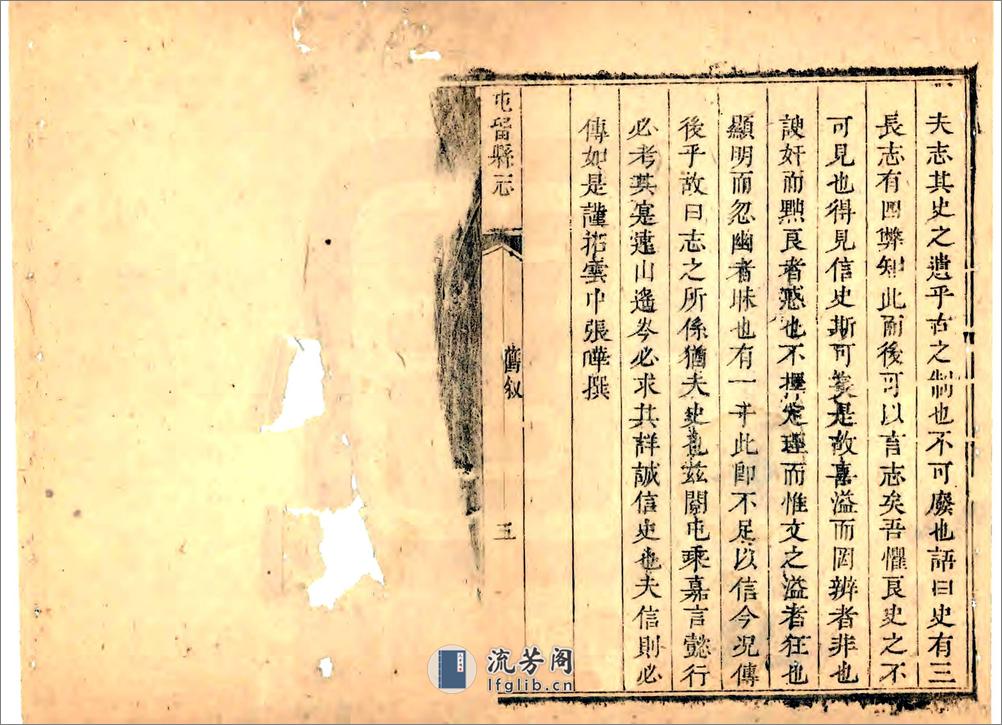 夫志其史之遺乎古之制也不可廢也語曰史有三
長志有四弊知此而後可以言志矣吾懼良史之不
可見也得見信史斯可矣是故喜溢而罔辨者非也
諛奸而黙良者惑也不擇定理而惟文之溢者狂也
顯明而忽幽者昧也有一于此即不足以信今况傳
後乎故曰志之所係猶夫史也兹閱屯乘嘉言懿行
必考其寔遠山遙岑必求其詳誠信史也夫信則必
傳如是謹祐雲中張嘩撰
屯留縣志
舊叙
五
流芳阁
lfglib.cn